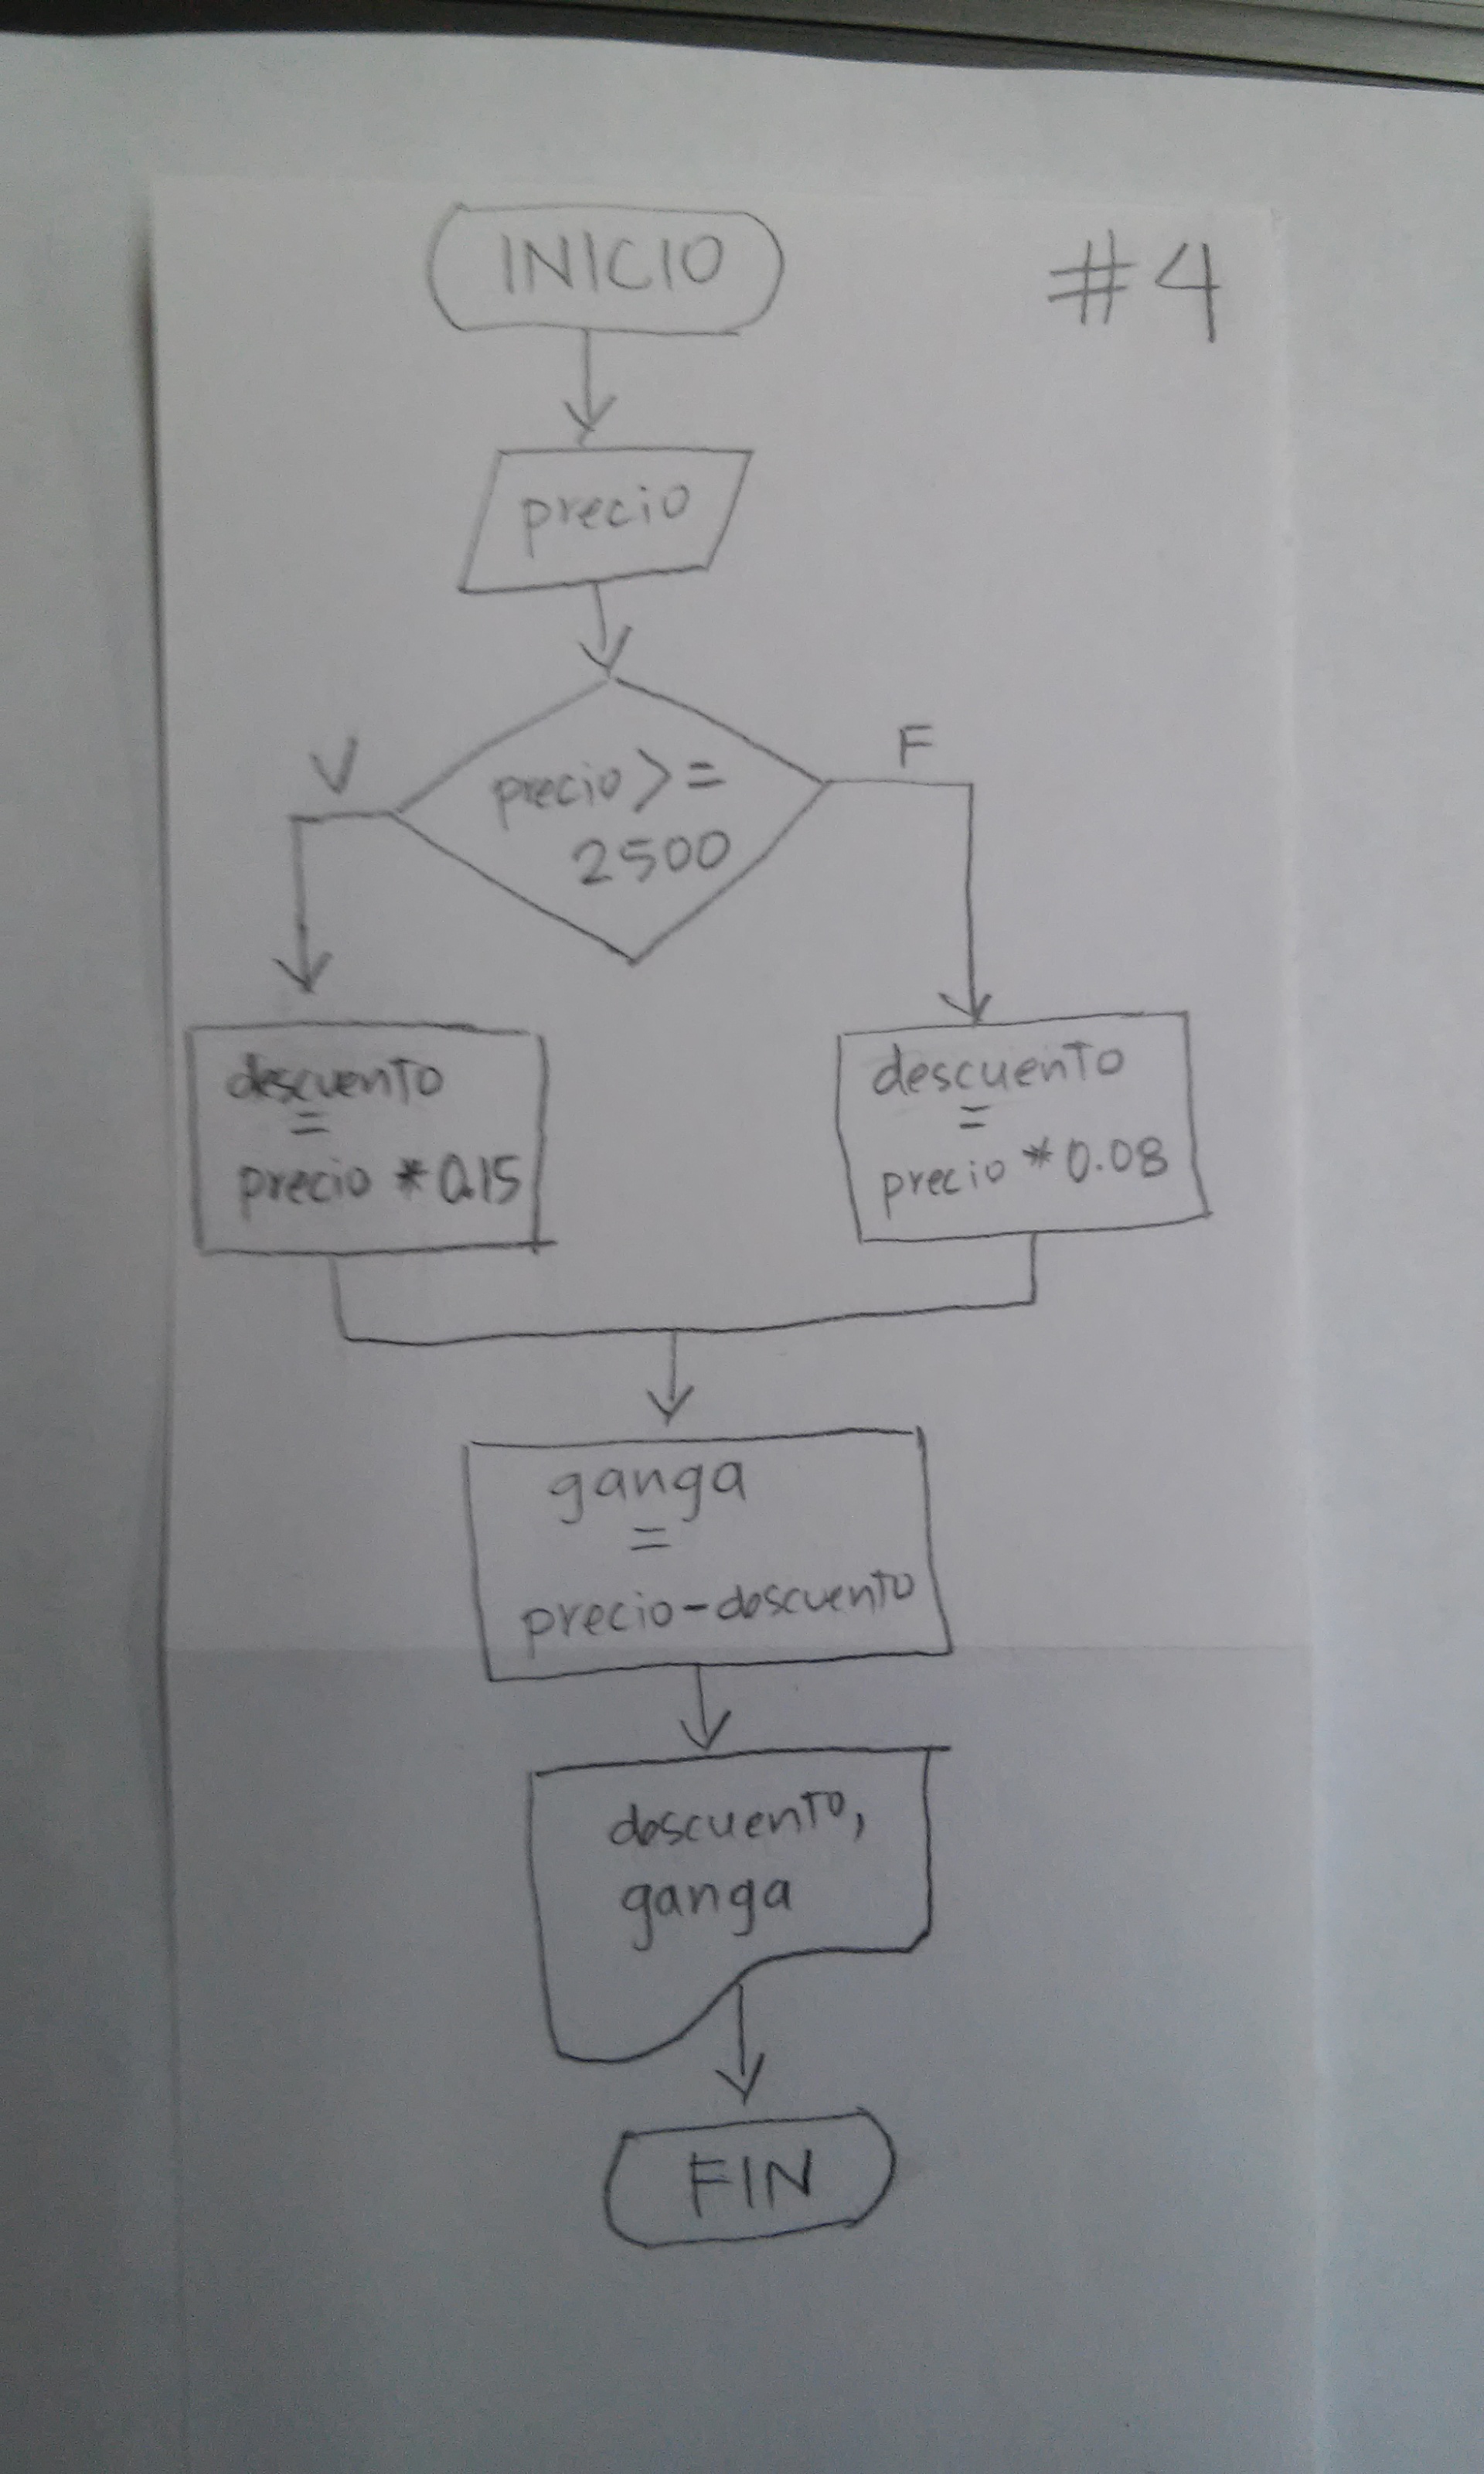 INICIO
#4
precio
precio >=
2500
V
F
descuento
=
precio * 0.15
descuento
=
precio * 0.08
ganga
=
precio - descuento
descuento,
ganga
FIN